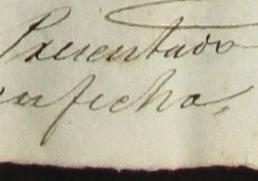 Presentado
en fecha,